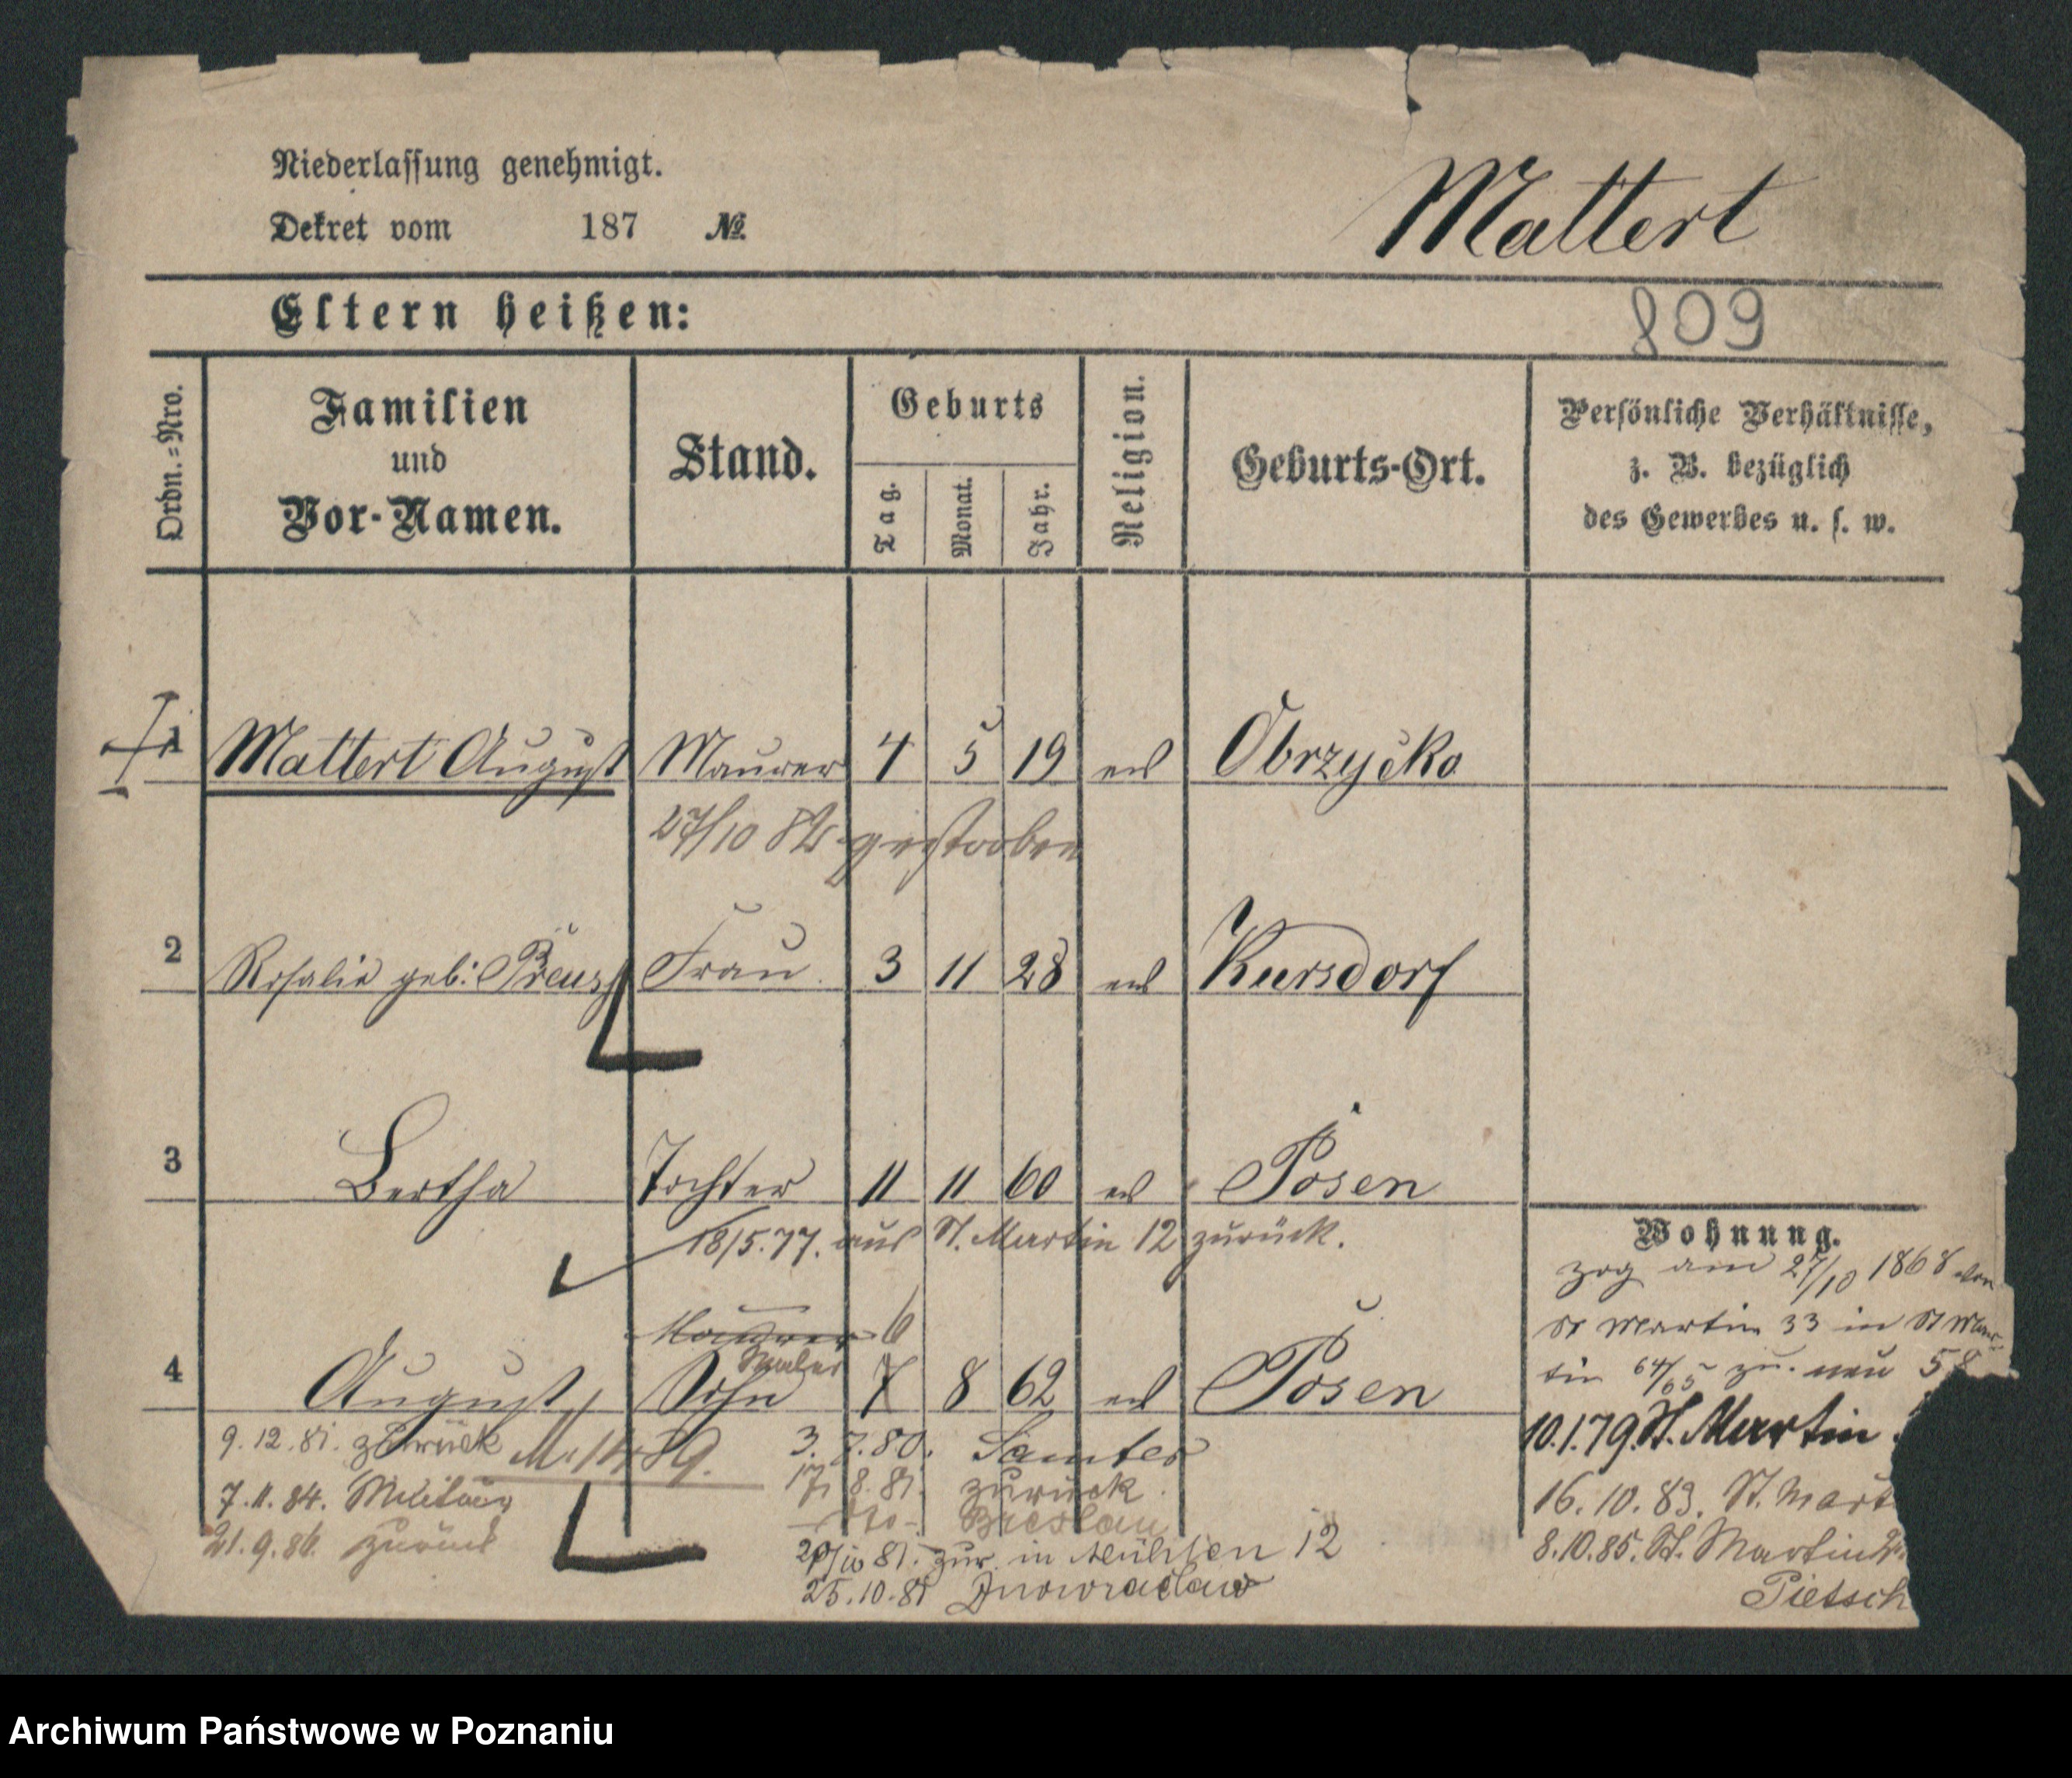 Niederlassung genehmigt.
Dekret vom 187 №
Mattert
Eltern heißen:
809
Ordn.=Nro.
Familien
und
Vor-Namen.
Stand.
Geburts
Tag.
Monat.
Jahr.
Religion.
Geburts-Ort.
Persönliche Verhältnisse,
z. B. bezüglich
des Gewerbes u. s. w.
1 Mattert August Maurer 4 5 19 ev Obrzycko
27/10 82 gestorben
2 Rosalie geb: Preuss Frau 3 11 28 ev Kursdorf
3 Bertha Tochter 11 11 60 ev Posen
18/5.77. aus St. Martin 12 zurück.
Wohnung.
zog am 27/10 1868 von
St Martin 33 in St Mar
tin 64/65 zu. neu 58
10.1.79. St. Martin
16.10.83. St. Mart
8.10.85. St. Martin
Pietsch
Maurer 6
Maler
4 August Sohn 7 8 62 ev Posen
9.12.81. zurück
7.11.84. Militair
21.9.86. zurück
3.7.80. Samter
17.8.81. zurück.
Breslau
20/10 81. zur. in Mühlen 12
25.10.81 Inowraclaw
Archiwum Państwowe w Poznaniu